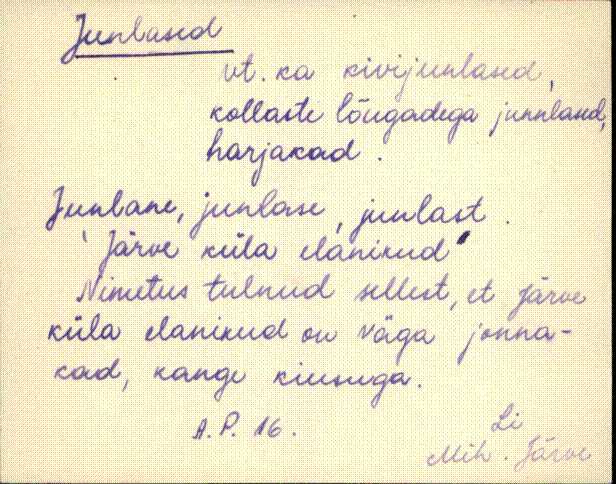 Junlased
vt. ka kivijunlased,
kollaste lõugadega junnlased,
harjakad.
Junlane, junlase, junlast.
"Järve küla elanikud"
Nimetus tulnud sellest, et Järve
küla elanikud on väga jonna-
kad, kange kiusuga.
A.P. 16.
Li
Mih. Järve